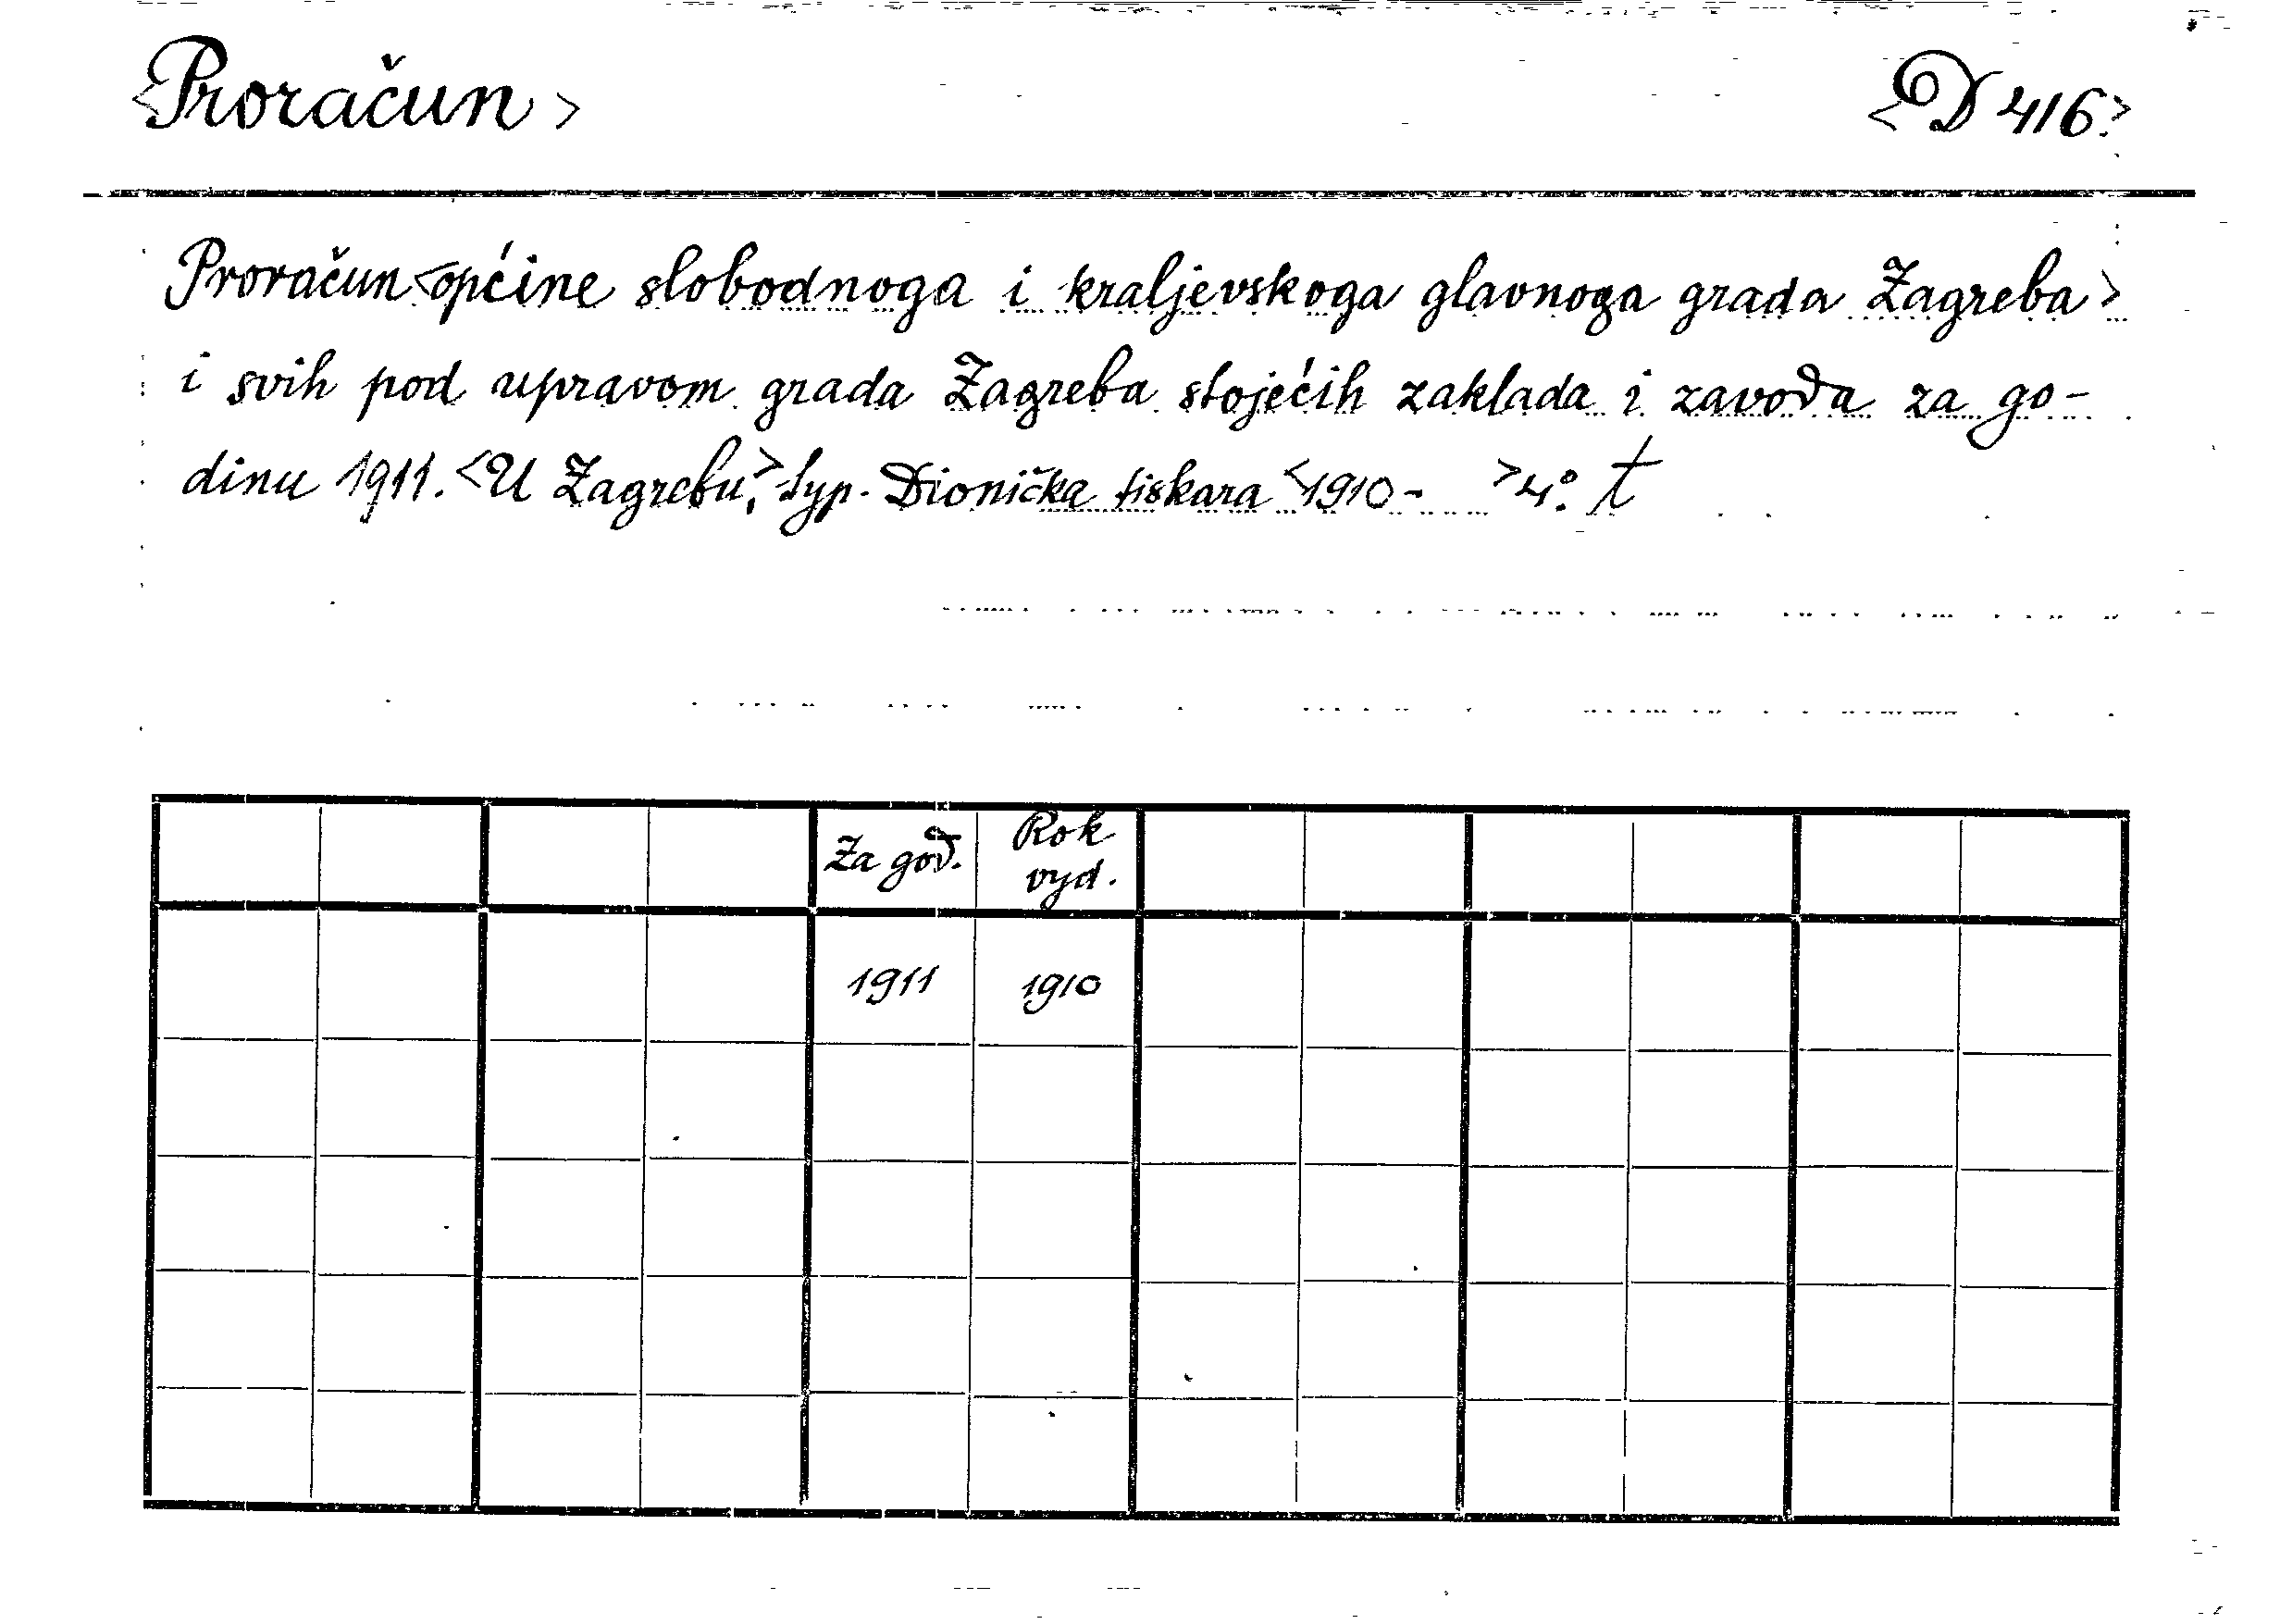 <Proračun> <D 416.>
Proračun <općine slobodnoga i kraljevskoga glavnoga grada Zagreba>
i svih pod upravom grada Zagreba stojećih zaklada i zavoda za go-
dinu 1911. <U Zagrebu,> Typ. Dionička tiskara <1910- > 4°. t
Za god. Rok
vyd.
1911 1910